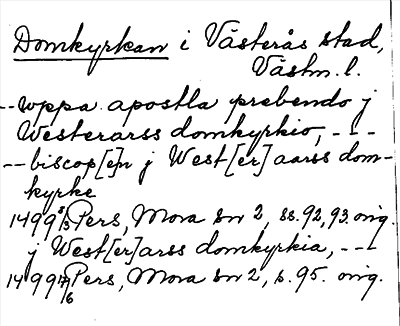 Domkyrkan i Västerås stad,
Västm. l.
--uppa apostla prebendo j
Westerarss domkyrkio, ---
--biscop[e]n j West[er]aarss dom-
kyrke
1499 8/3 Pers, Mora sn 2, ss. 92, 93. orig.
j West[er]arss domkyrkia, ---
1499 17/6 Pers, Mora sn 2, s. 95. orig.